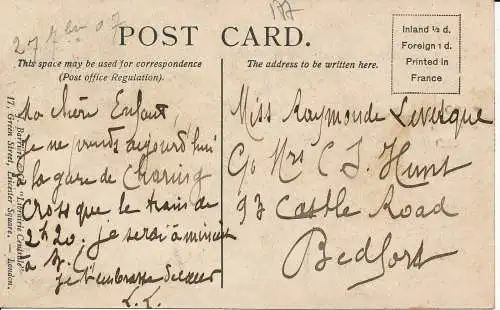 27 9bre 07
POST CARD.
This space may be used for correspondence
(Post office Regulation).
The address to be written here.
Inland ½ d.
Foreign 1 d.
Printed in
France
Ma chère Enfant,
Je ne prends aujourd'hui
à la gare de Charing
Cross que le train de
2h20. je serai à minuit
à
je t'embrasse
L. L.
Miss Raymonde Levesque
C/o Mrs C J. Hunt
93 Castle Road
Bedfort
"Librairie Centrale"
17, Green Street, Leicester Square. — London.